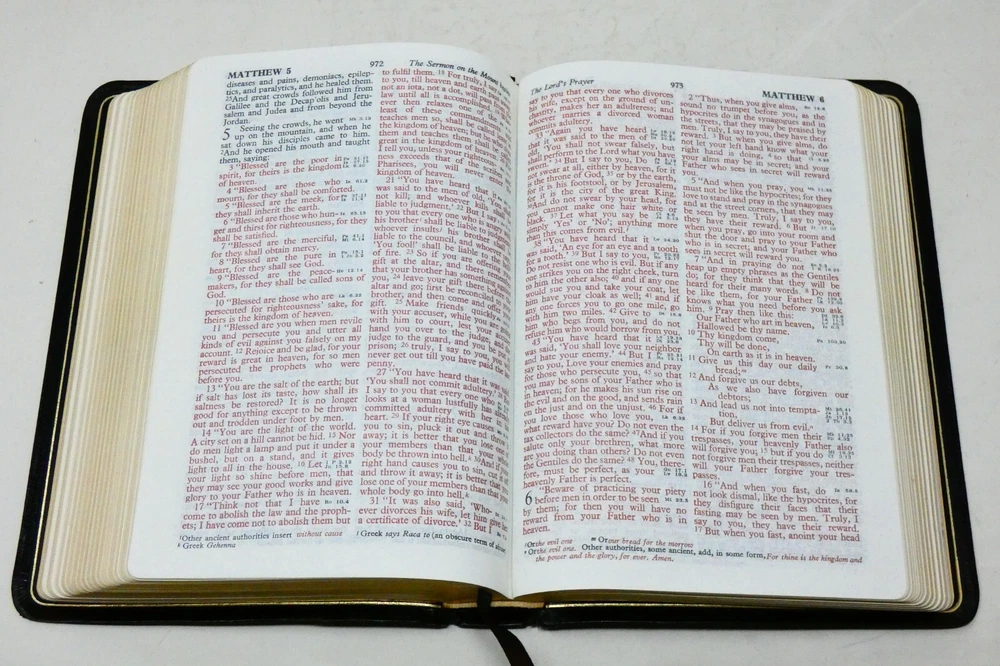 MATTHEW 5
972
The Sermon on the Mount
diseases and pains, demoniacs, epilep-
tics, and paralytics, and he healed them.
25And great crowds followed him from
Galilee and the Decap'olis and Jeru-
salem and Judea and from beyond the
Jordan.
5 Seeing the crowds, he went
up on the mountain, and when he
sat down his disciples came to him.
2And he opened his mouth and taught
them, saying:
3 "Blessed are the poor in
spirit, for theirs is the kingdom
of heaven.
4 "Blessed are those who
mourn, for they shall be comforted.
5 "Blessed are the meek, for
they shall inherit the earth.
6 "Blessed are those who hun-
ger and thirst for righteousness, for they
shall be satisfied.
7 "Blessed are the merciful,
for they shall obtain mercy.
8 "Blessed are the pure in
heart, for they shall see God.
9 "Blessed are the peace-
makers, for they shall be called sons of
God.
10 "Blessed are those who are
persecuted for righteousness' sake, for
theirs is the kingdom of heaven.
11 "Blessed are you when men revile
you and persecute you and utter all
kinds of evil against you falsely on my
account. 12 Rejoice and be glad, for your
reward is great in heaven, for so men
persecuted the prophets who were
before you.
13 "You are the salt of the earth; but
if salt has lost its taste, how shall its
saltness be restored? It is no longer
good for anything except to be thrown
out and trodden under foot by men.
14 "You are the light of the world.
A city set on a hill cannot be hid. 15 Nor
do men light a lamp and put it under a
bushel, but on a stand, and it gives
light to all in the house. 16 Let
your light so shine before men, that
they may see your good works and give
glory to your Father who is in heaven.
17 "Think not that I have
come to abolish the law and the proph-
ets; I have come not to abolish them but
to fulfil them. 18 For truly, I say
to you, till heaven and earth
not an iota, not a dot, will pass from
law until all is accomplished.
ever then relaxes one of the
least of these commandments
teaches men so, shall be called
the kingdom of heaven; but he
them and teaches them shall be
great in the kingdom of heaven.
I tell you, unless your righteous-
ness exceeds that of the scribes
Pharisees, you will never enter
kingdom of heaven.
21 "You have heard that it
was said to the men of old,
not kill; and whoever kills shall
liable to judgment.' 22 But I say
to you that every one who is angry
his brother shall be liable to judg-
whoever insults his brother shall
liable to the council, and whoever
'You fool!' shall be liable to the
of fire. 23 So if you are offering
gift at the altar, and there remem-
that your brother has something
you, 24 leave your gift there before
altar and go; first be reconciled to
brother, and then come and offer
gift. 25 Make friends quickly
with your accuser, while you are
with him to court, lest your
hand you over to the judge, and
judge to the guard, and you be
prison; 26 truly, I say to you,
never get out till you have paid the
penny.
27 "You have heard that it was
'You shall not commit adultery.'
I say to you that every one who
looks at a woman lustfully has
committed adultery with her in
heart. 29 If your right eye causes
you to sin, pluck it out and throw
away; it is better that you lose one
your members than that your
body be thrown into hell. 30 And if
right hand causes you to sin, cut it
and throw it away; it is better that
lose one of your members than that
whole body go into hell.
31 "It was also said, 'Who-
ever divorces his wife, let him give
a certificate of divorce.' 32 But I
Other ancient authorities insert without cause
Greek Gehenna
Greek says Raca to (an obscure term of abuse)
The Lord's Prayer
973
MATTHEW 6
say to you that every one who divorces
his wife, except on the ground of un-
chastity, makes her an adulteress; and
whoever marries a divorced woman
commits adultery.
33 "Again you have heard
that it was said to the men of
old, 'You shall not swear falsely, but
shall perform to the Lord what you have
sworn.' 34 But I say to you, Do
not swear at all, either by heaven, for it
is the throne of God, 35 or by the earth,
for it is his footstool, or by Jerusalem,
for it is the city of the great King.
36 And do not swear by your head, for
you cannot make one hair white or
black. 37 Let what you say be
simply 'Yes' or 'No'; anything more
than this comes from evil.
38 "You have heard that it
was said, 'An eye for an eye and a tooth
for a tooth.' 39 But I say to you,
Do not resist one who is evil. But if any
one strikes you on the right cheek, turn
to him the other also; 40 and if any one
would sue you and take your coat, let
him have your cloak as well; 41 and if
any one forces you to go one mile, go
with him two miles. 42 Give to
him who begs from you, and do not
refuse him who would borrow from you.
43 "You have heard that it
was said, 'You shall love your neighbor
and hate your enemy.' 44 But I
say to you, Love your enemies and pray
for those who persecute you, 45 so that
you may be sons of your Father who is
in heaven; for he makes his sun rise on
the evil and on the good, and sends rain
on the just and on the unjust. 46 For if
you love those who love you,
what reward have you? Do not even the
tax collectors do the same? 47 And if you
salute only your brethren, what more
are you doing than others? Do not even
the Gentiles do the same? 48 You, there-
fore, must be perfect, as your
heavenly Father is perfect.
6 "Beware of practicing your piety
before men in order to be seen
by them; for then you will have no
reward from your Father who is in
heaven.
2 "Thus, when you give alms,
sound no trumpet before you, as the
hypocrites do in the synagogues and in
the streets, that they may be praised by
men. Truly, I say to you, they have their
reward. 3 But when you give alms, do
not let your left hand know what your
right hand is doing, 4 so that
your alms may be in secret; and your
Father who sees in secret will reward
you.
5 "And when you pray, you
must not be like the hypocrites; for they
love to stand and pray in the synagogues
and at the street corners, that they may
be seen by men. Truly, I say to you,
they have their reward. 6 But
when you pray, go into your room and
shut the door and pray to your Father
who is in secret; and your Father who
sees in secret will reward you.
7 "And in praying do not
heap up empty phrases as the Gentiles
do; for they think that they will be
heard for their many words. 8 Do not
be like them, for your Father
knows what you need before you ask
him. 9 Pray then like this:
Our Father who art in heaven,
Hallowed be thy name.
10 Thy kingdom come,
Thy will be done,
On earth as it is in heaven.
11 Give us this day our daily
bread;
12 And forgive us our debts,
As we also have forgiven our
debtors;
13 And lead us not into tempta-
tion,
But deliver us from evil.
14 For if you forgive men their
trespasses, your heavenly Father also
will forgive you; 15 but if you do
not forgive men their trespasses, neither
will your Father forgive your tres-
passes.
16 "And when you fast, do
not look dismal, like the hypocrites, for
they disfigure their faces that their
fasting may be seen by men. Truly, I
say to you, they have their reward.
17 But when you fast, anoint your head
Or the evil one
Or our bread for the morrow
Or the evil one. Other authorities, some ancient, add, in some form, For thine is the kingdom and
the power and the glory, for ever. Amen.